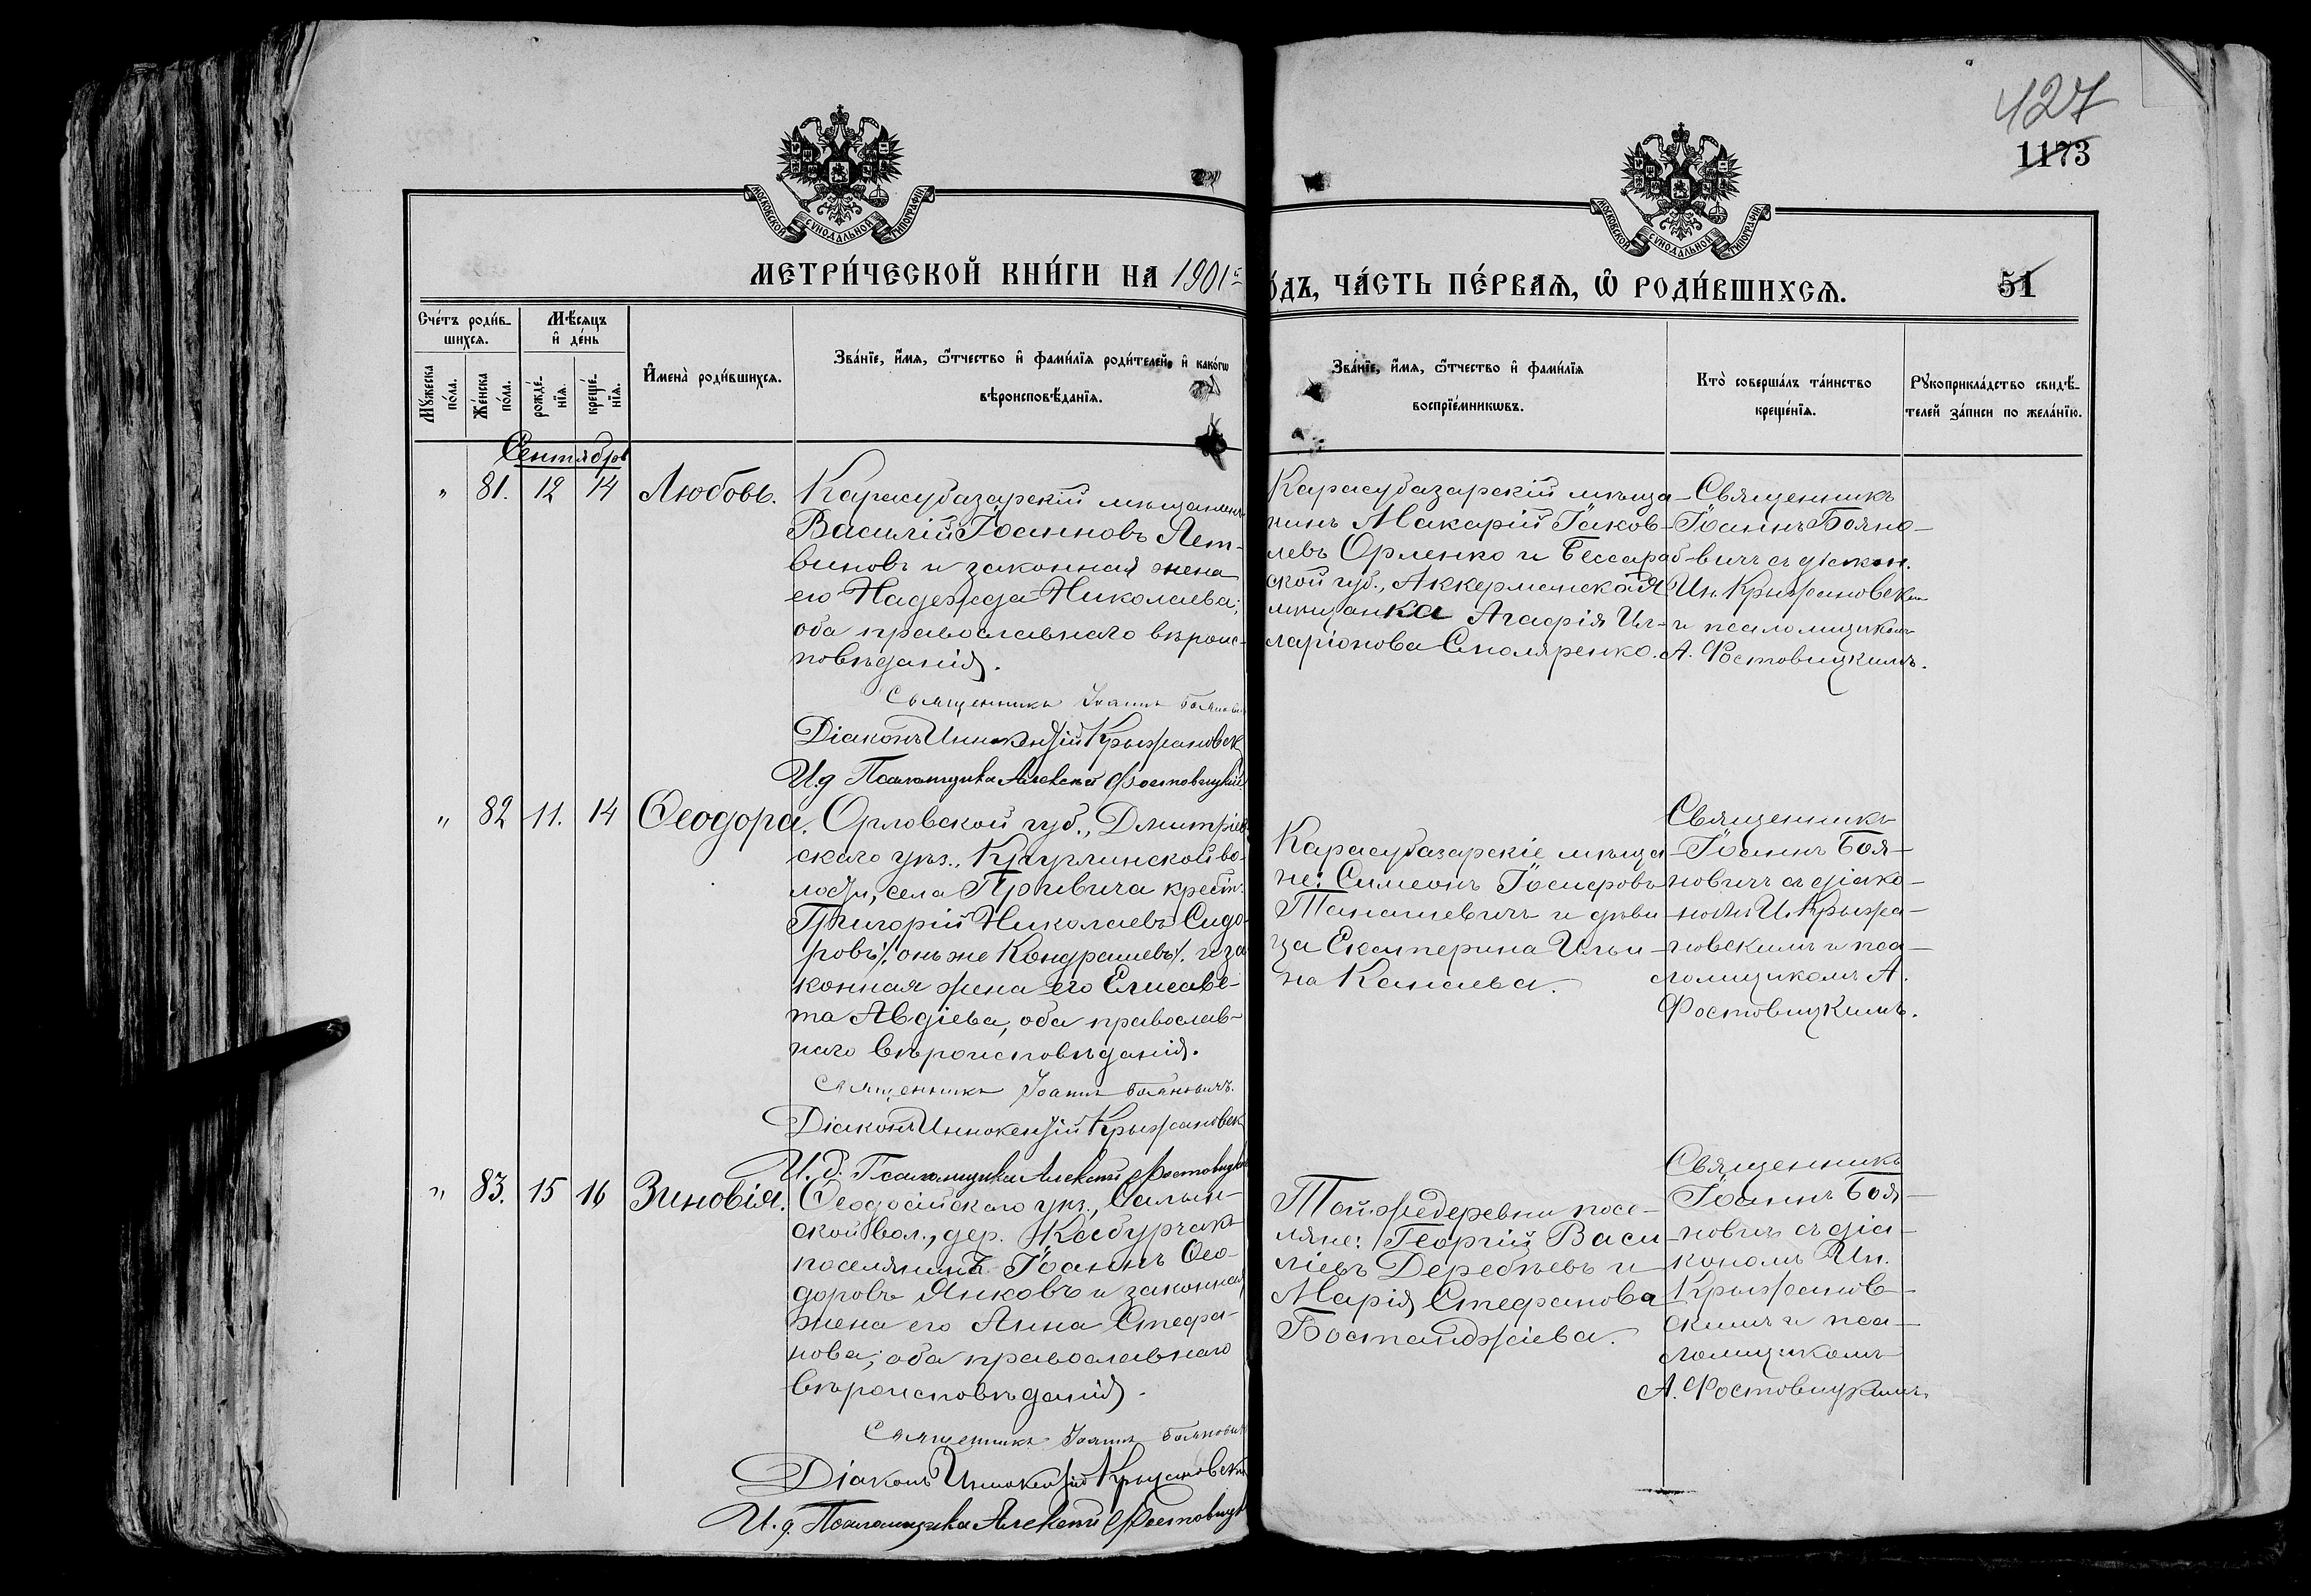 427
1173
МОСКОВСКОЙ СѴНОДАЛЬНОЙ ТИПОГРАФІИ
МОСКОВСКОЙ СѴНОДАЛЬНОЙ ТИПОГРАФІИ
МЕТРИ́ЧЕСКОЙ КНИ́ГИ НА 1901
о́дъ, ЧА́СТЬ ПЕ́РВАѦ, Ѡ РОДИ́ВШИХСѦ.
51
Сче́тъ роди́в-
шихсѧ.
Мѣ́сѧцъ
и де́нь
Мꙋ́жеска
по́ла.
Же́нска
по́ла.
рожде́-
нїѧ.
креще́-
нїѧ.
И҆мена̀ роди́вшихсѧ.
Зва́нїе, и҆́мѧ, ѻ҆́тчество и҆ фами́лїѧ роди́телей, и҆ како́гѡ
вѣроисповѣ́данїѧ.
Зва́нїе, и҆́мѧ, ѻ҆́тчество и҆ фами́лїѧ
воспрїе́мникѡвъ.
Кто̀ соверша́лъ та́инство
креще́нїѧ.
Рꙋкоприкла́дство свидѣ́-
телей за́писи по жела́нїю.
Сентябрь
" 81. 12 14 Любовь.
Карасубазарскій мѣщанинъ
Василій Іоанновъ Лет-
виновъ и законная жена
его Надежда Николаева;
оба православнаго вѣроис-
повѣданія.
Священникъ Іоаннъ Боянович
Діаконъ Иннокентій Крыжановск
И.д Псаломщика Алексѣй Фостовицкій
Карасубазарскій мѣща-
нинъ Макарій Іаков-
левъ Орленко и Бессараб-
ской губ., Аккерманская
мѣщанка Агафія Ил-
ларіонова Столяренко.
Священникъ
Іоаннъ Бояно-
вичъ съ діакон.
Ин. Крыжановским
и псаломщикомъ
А. Фостовицкимъ.
" 82 11. 14 Ѳеодора.
Орловской губ., Дмитріев
скаго уѣз., Круглинской во-
лости, села крестн.
Григорій Николаевъ Сидо-
ровъ /:онъ же Кондрашевъ/. и за
конная жена его Елисаве-
та Авдіева, оба православ-
наго вѣроисповѣданія.
Священникъ Іоаннъ Бояновичъ.
Діаконъ Иннокентій Крыжановск
И. д. Псаломщика Алексѣй Фостовицкій
Карасубазарскіе мѣща-
не: Симеонъ Іосифовъ
Танашевичъ и дѣви-
ца Екатерина Ильи-
на Канаева.
Священникъ
Іоаннъ Боя-
новичъ съ діако-
номъ И. Крыжа-
новскимъ и пса-
ломщикомъ А.
Фостовицкимъ.
" 83. 15 16 Зиновія.
Ѳеодосійскаго уѣз., Салын-
ской вол., дер. Кабурчакъ
поселянинъ Іоаннъ Ѳео-
доровъ Янковъ и законная
жена его Анна Стефа-
нова; оба православнаго
вѣроисповѣданія.
Священникъ Іоаннъ Боянович
Діаконъ Иннокентій Крыжановск
И. д. Псаломщика Алексѣй Фостовицк
Той-же деревни посе-
ляне: Георгій Васи-
ліевъ Деребѣевъ и
Марія Стефанова
Бостанджіева.
Священникъ
Іоаннъ Боя-
новичъ съ діа-
кономъ Ин.
Крыжанов-
скимъ и пса-
ломщикомъ
А. Фостовицкимъ.